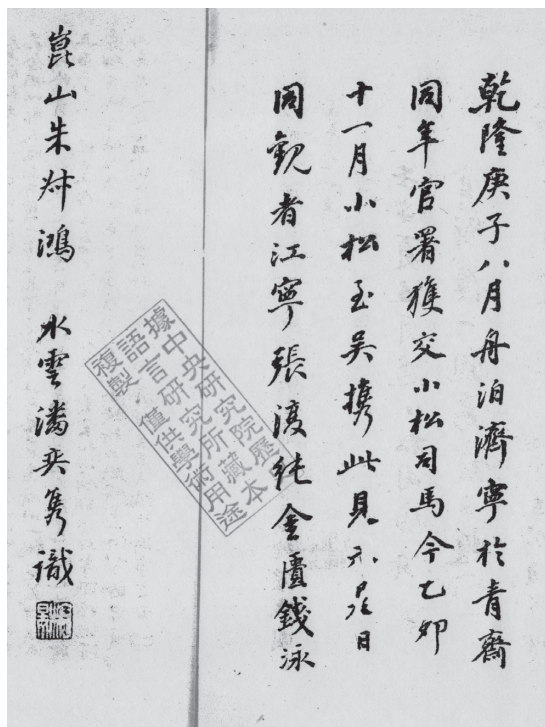 乾隆庚子八月舟泊濟寧於青齋
同年官署獲交小松司馬今乙卯
十一月小松至吳攜此見示是日
同觀者江寧張復純金匱錢泳
崑山朱鴻 水雲潘奕雋識
據中央研究院歷
語言研究所藏本
複製僅供學術用途